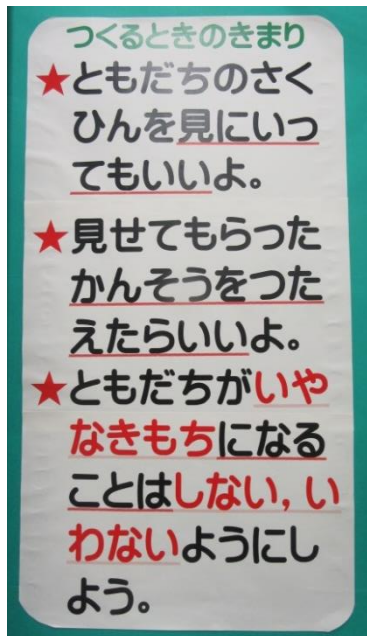 つくるときのきまり
★ともだちのさく
ひんを見にいっ
てもいいよ。
★見せてもらった
かんそうをつた
えたらいいよ。
★ともだちがいや
なきもちになる
ことはしない,い
わないようにし
よう。